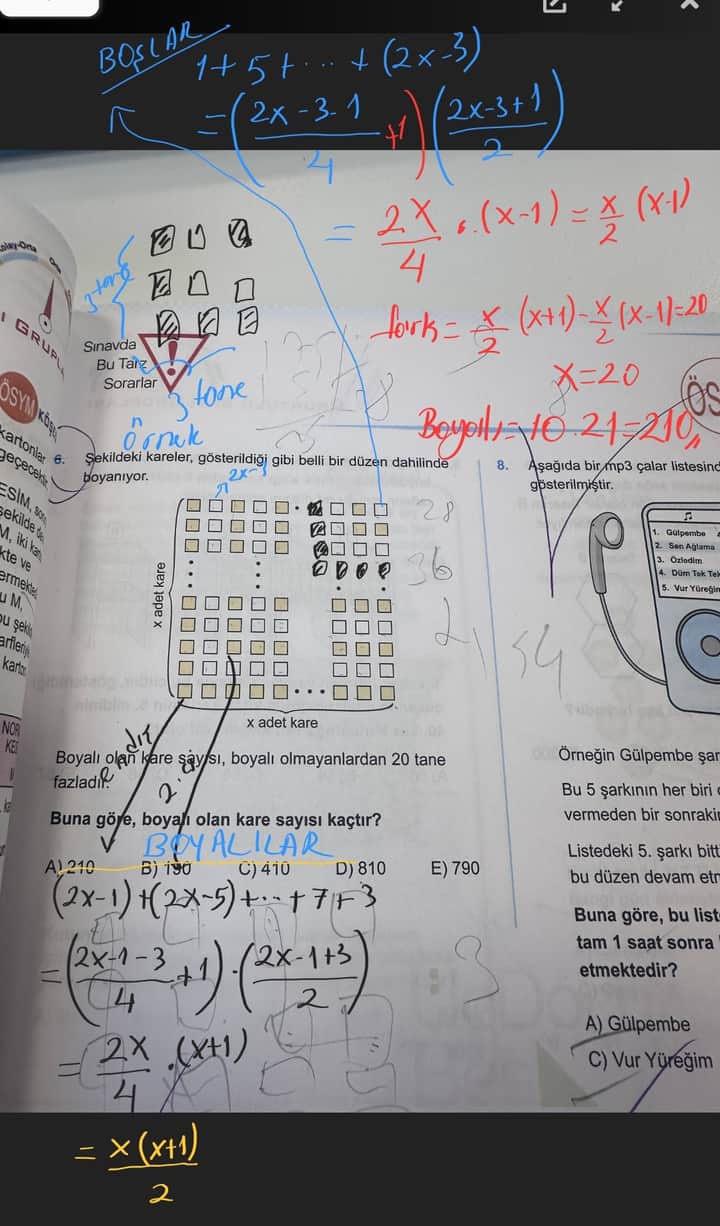 BOŞLAR
1+5+...+(2x-3)
=(2x-3-1/4 +1)(2x-3+1/2)
= 2x/4 . (x-1) = x/2 (x-1)
fark = x/2 (x+1) - x/2 (x-1) = 20
x=20
Boyalı = 10.21 = 210,,
3 tane
3 tane
Örnek
Sınavda
Bu Tarz
Sorarlar
ÖSYM
6. Şekildeki kareler, gösterildiği gibi belli bir düzen dahilinde
boyanıyor.
x adet kare
x adet kare
Boyalı olan kare sayısı, boyalı olmayanlardan 20 tane
fazladır.
Buna göre, boyalı olan kare sayısı kaçtır?
A) 210 B) 190 C) 410 D) 810 E) 790
BOYALILAR
(2x-1)+(2x-5)+...+7+3
=(2x-1-3/4 +1).(2x-1+3/2)
= 2x/4 .(x+1)
= x(x+1)/2
8. Aşağıda bir mp3 çalar listesind
gösterilmiştir.
1. Gülpembe
2. Sen Ağlama
3. Özledim
4. Düm Tek Tek
5. Vur Yüreğim
Örneğin Gülpembe şar
Bu 5 şarkının her biri
vermeden bir sonrakin
Listedeki 5. şarkı bitt
bu düzen devam etm
Buna göre, bu list
tam 1 saat sonra
etmektedir?
A) Gülpembe
C) Vur Yüreğim